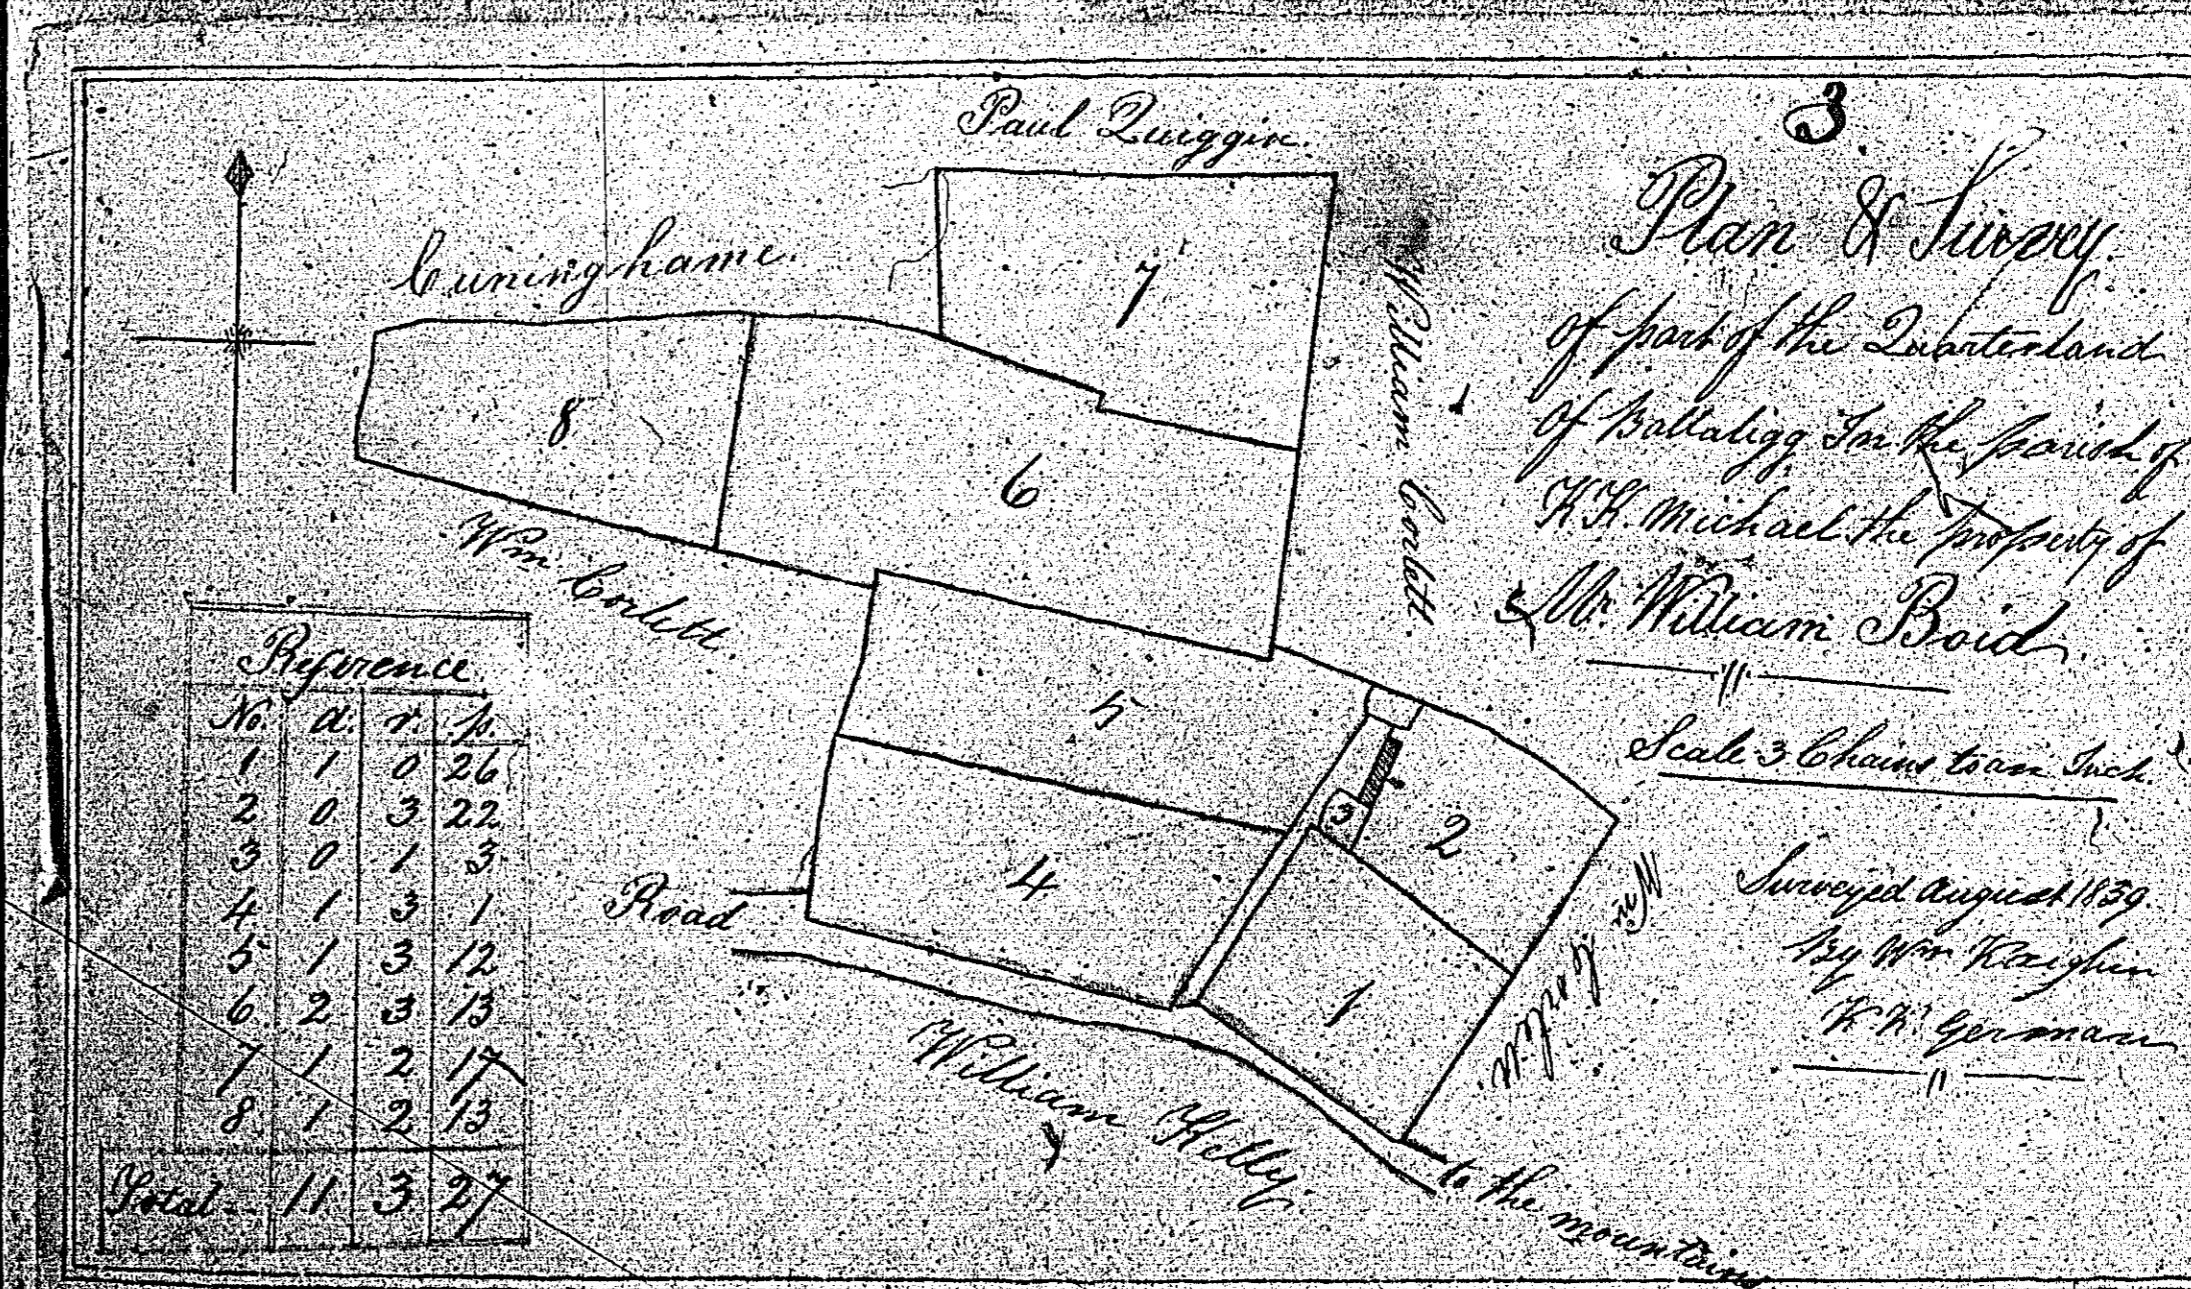 3
Plan & Survey
of part of the Quarterland
of Ballaligg In the parish of
KK. Michael the property of
Mr. William Boid
Scale 3 Chains to an Inch
Surveyed August 1839
By Wm Kaighin
K.K. German
Paul Quiggin.
Cuninghame.
William Corlett
Wm Corlett.
Wm Corlett
William Kelly.
Road
to the mountains
7
8
6
5
3
2
4
1
Reference
No. a. r. p.
1 1 0 26
2 0 3 22
3 0 1 3
4 1 3 1
5 1 3 12
6 2 3 13
7 1 2 17
8 1 2 13
Total 11 3 27